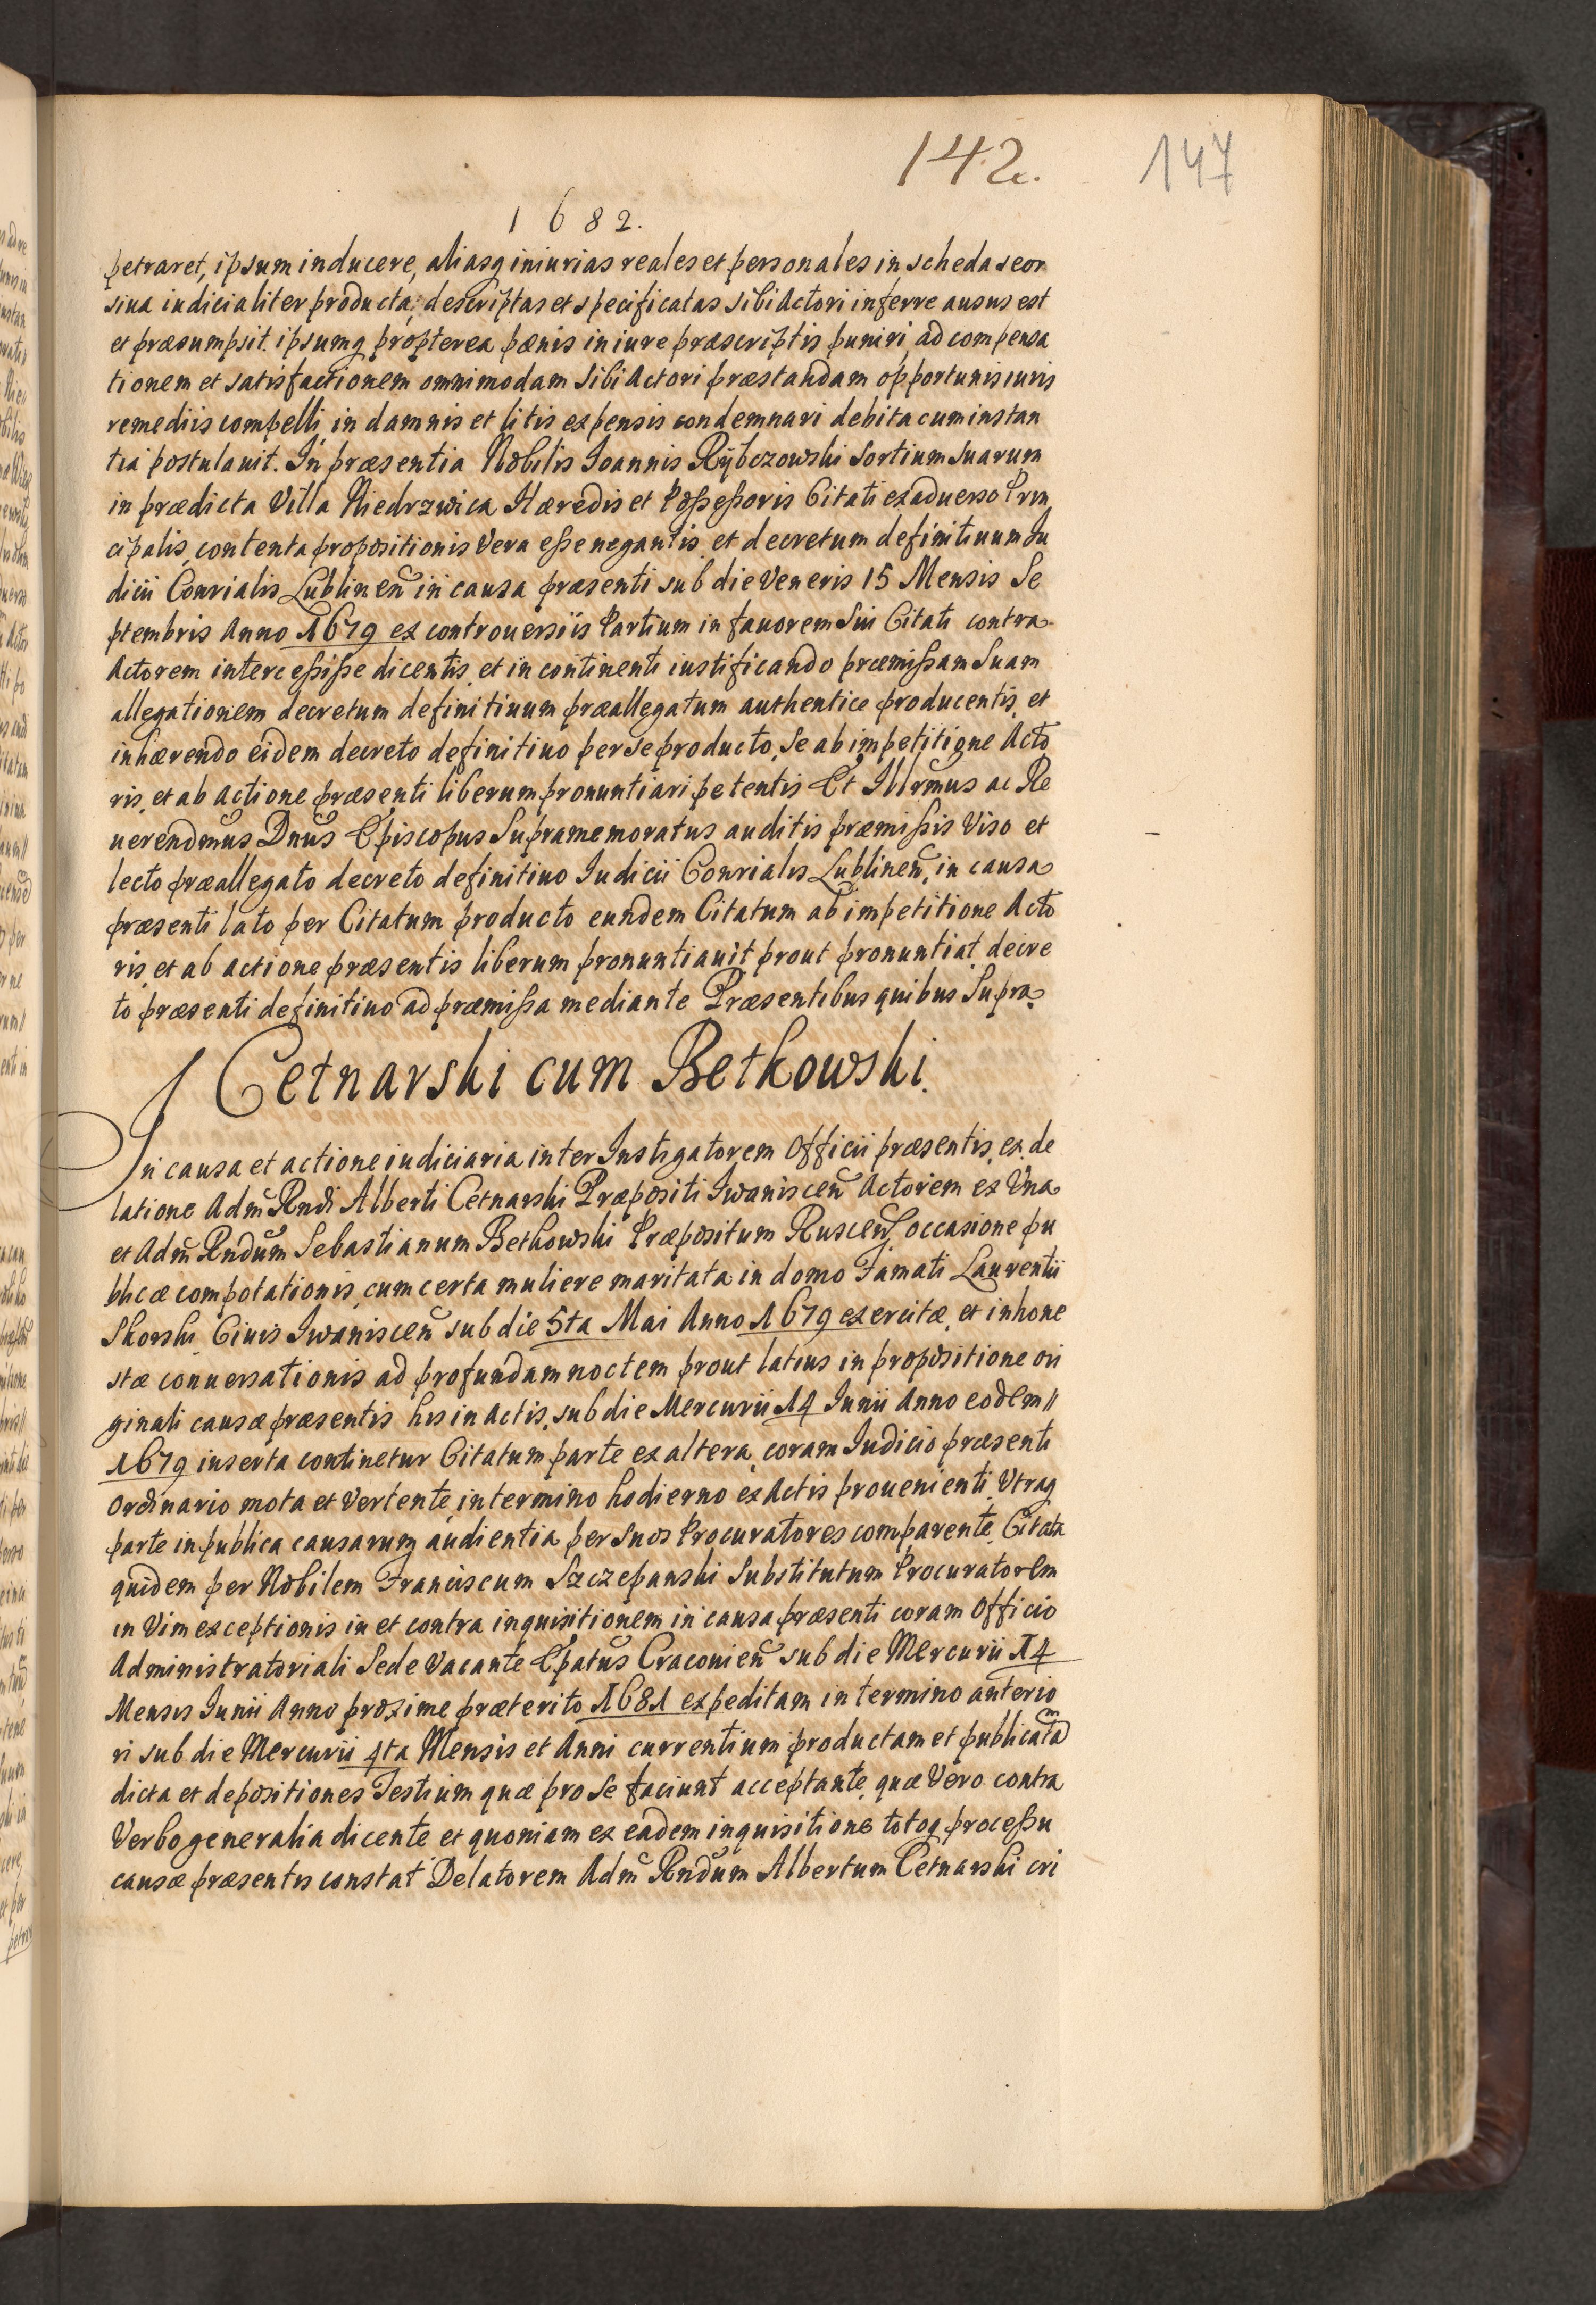 142.
147
1682.
petraret, ipsum inducere, aliasq iniurias reales et personales in scheda seor
siua iudicialiter producta, descriptas et specificatas sibi Actori inferre ausus est
et præsumpsit. ipsumq propterea pœnis in iure præscriptis puniri, ad compensa
tionem et satisfactionem omnimodam sibi Actori præstandam opportunis iuris
remediis compelli in damnis et litis expensis condemnari debita cum instan
tia postulauit. In præsentia Nobilis Ioannis Rÿbczowski Sortium suarum
in prædicta Villa Niedrzwica Hæredis et Possessoris Citati ex aduerso Prin
cipalis, contenta propositionis Vera esse negantis, et decretum definitiuum Iu
dicii Consrialis Lublineñ in causa præsenti sub die Veneris 15 Mensis Se
ptembris Anno 1679 ex controuersiis Partium in fauorem Sui Citati contra
Actorem intercessisse dicentis, et in continenti iustificando præmissam Suam
allegationem decretum definitiuum præallegatum authentice producentis, et
inhærendo eidem decreto definitiuo per se producto, se ab impetitione Acto
ris, et ab actione præsenti liberum pronuntiari petentis Et Illrmus ac Re
uerendmus Dnus Episcopus Supramemoratus auditis præmissis Viso et
lecto præallegato decreto definitiuo Iudicii Consrialis Lublineñ, in causa
præsenti lato per Citatum producto eundem Citatum ab impetitione Acto
ris, et ab actione præsentis liberum pronuntiauit prout pronuntiat decre
to præsenti definitiuo ad præmissa mediante Præsentibus quibus Supra.
Cetnarski cum Betkowski.
In causa et actione iudiciaria inter Instigatorem Officii præsentis, ex de
latione Adm̃ Rndi Alberti Cetnarski Præpositi Iwanisceñ Actorem ex Vna
et Adm̃ Rndum Sebastianum Betkowski Præpositum Ruscens, occasione pu
blicæ compotationis, cum certa muliere maritata in domo Famati Laurentii
Skorski Ciuis Iwanisceñ sub die 5ta Mai Anno 1679 exercitæ, et inhone
stæ conuersationis ad profundam noctem prout latius in propositione ori
ginali causæ præsentis his in Actis, sub die Mercurii 14 Iunii Anno eodem //
1679 inserta continetur Citatum parte ex altera, coram Iudicio præsenti
Ordinario mota et Vertente, in termino hodierno ex Actis proueniente, Vtraq
parte in publica causarum audientia per Suos Procuratores comparente, Citata
quidem per Nobilem Franciscum Szczepanski Substitutum Procuratorem
in Vim exceptionis in et contra inquisitionem in causa præsenti coram Officio
Administratoriali Sede Vacante Epatus Cracouieñ sub die Mercurii 14
Mensis Iunii Anno proxime præterito 1681 expeditam in termino anterio
ri sub die Mercurii 4ta Mensis et Anni currentium productam et publicatam
dicta et depositiones Testium quæ pro Se faciunt acceptante, quæ Vero contra
Verbo generalia dicente et quoniam ex eadem inquisitione totoq processu
causæ præsentis constat Delatorem Adm̃ Rndum Albertum Cetnarski cri